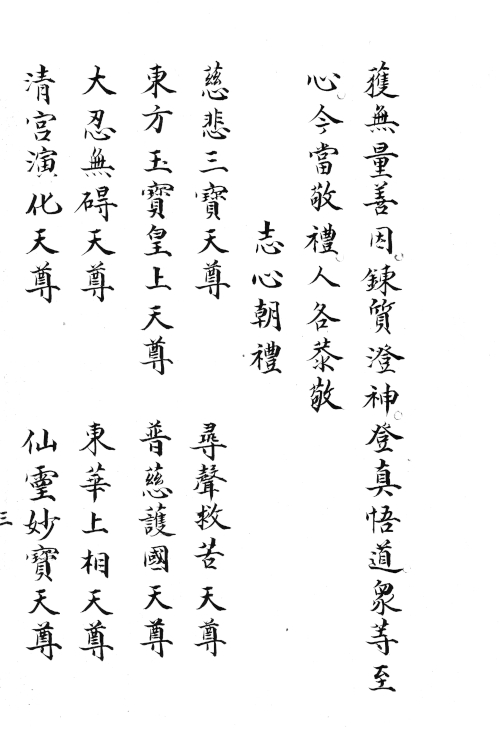 獲無量善因。鍊質澄神。登真悟道眾等至
心。今當敬禮。人各恭敬
志心朝禮
慈悲三寶天尊　尋聲救苦天尊
東方玉寶皇上天尊　普慈護國天尊
大忍無碍天尊　東華上相天尊
清宮演化天尊　仙靈妙寶天尊
三